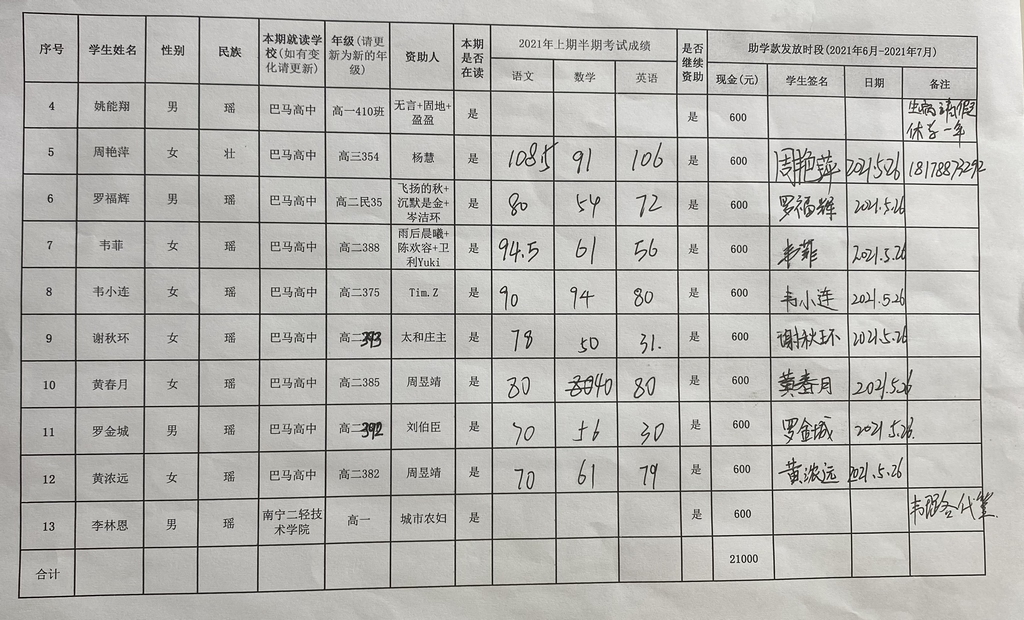 序号 学生姓名 性别 民族 本期就读学校(如有变化请更新) 年级(请更新为新的年级) 资助人 本期是否在读 2021年上期半期考试成绩 是否继续资助 助学款发放时段(2021年6月-2021年7月)
语文 数学 英语 现金(元) 学生签名 日期 备注
4 姚能翔 男 瑶 巴马高中 高一410班 无言+固地+盈盈 是 是 600 生病请假休学一年
5 周艳萍 女 壮 巴马高中 高三354 杨慧 是 108.5 91 106 是 600 周艳萍 2021.5.26 18178873292
6 罗福辉 男 瑶 巴马高中 高二民35 飞扬的秋+沉默是金+岑洁环 是 80 54 72 是 600 罗福辉 2021.5.26
7 韦菲 女 瑶 巴马高中 高二388 雨后晨曦+陈欢容+卫利Yuki 是 94.5 61 56 是 600 韦菲 2021.5.26
8 韦小连 女 瑶 巴马高中 高二375 Tim.Z 是 90 94 80 是 600 韦小连 2021.5.26
9 谢秋环 女 瑶 巴马高中 高二393 太和庄主 是 78 50 31. 是 600 谢秋环 2021.5.26
10 黄春月 女 瑶 巴马高中 高二385 周昱靖 是 80 40 80 是 600 黄春月 2021.5.26
11 罗金城 男 瑶 巴马高中 高二392 刘伯臣 是 70 56 30 是 600 罗金城 2021.5.26
12 黄浓远 女 瑶 巴马高中 高二382 周昱靖 是 70 61 79 是 600 黄浓远 2021.5.26
13 李林恩 男 瑶 南宁二轻技术学院 高一 城市农妇 是 是 600 代签
合计 21000